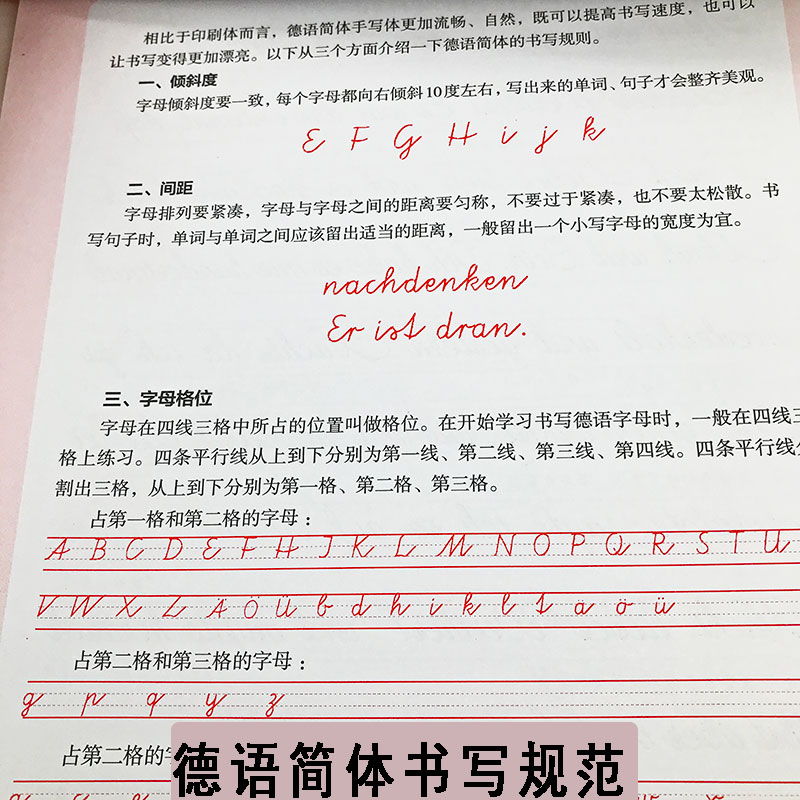 相比于印刷体而言，德语简体手写体更加流畅、自然，既可以提高书写速度，也可以
让书写变得更加漂亮。以下从三个方面介绍一下德语简体的书写规则。
一、倾斜度
字母倾斜度要一致，每个字母都向右倾斜10度左右，写出来的单词、句子才会整齐美观。
E F G H i j k
二、间距
字母排列要紧凑，字母与字母之间的距离要匀称，不要过于紧凑，也不要太松散。书
写句子时，单词与单词之间应该留出适当的距离，一般留出一个小写字母的宽度为宜。
nachdenken
Er ist dran.
三、字母格位
字母在四线三格中所占的位置叫做格位。在开始学习书写德语字母时，一般在四线三
格上练习。四条平行线从上到下分别为第一线、第二线、第三线、第四线。四条平行线分
割出三格，从上到下分别为第一格、第二格、第三格。
占第一格和第二格的字母：
A B C D E F H J K L M N O P Q R S T U
V W X Z Ä Ö Ü b d h i k l t ä ö ü
占第二格和第三格的字母：
g p q y z
占第二格的字
德语简体书写规范